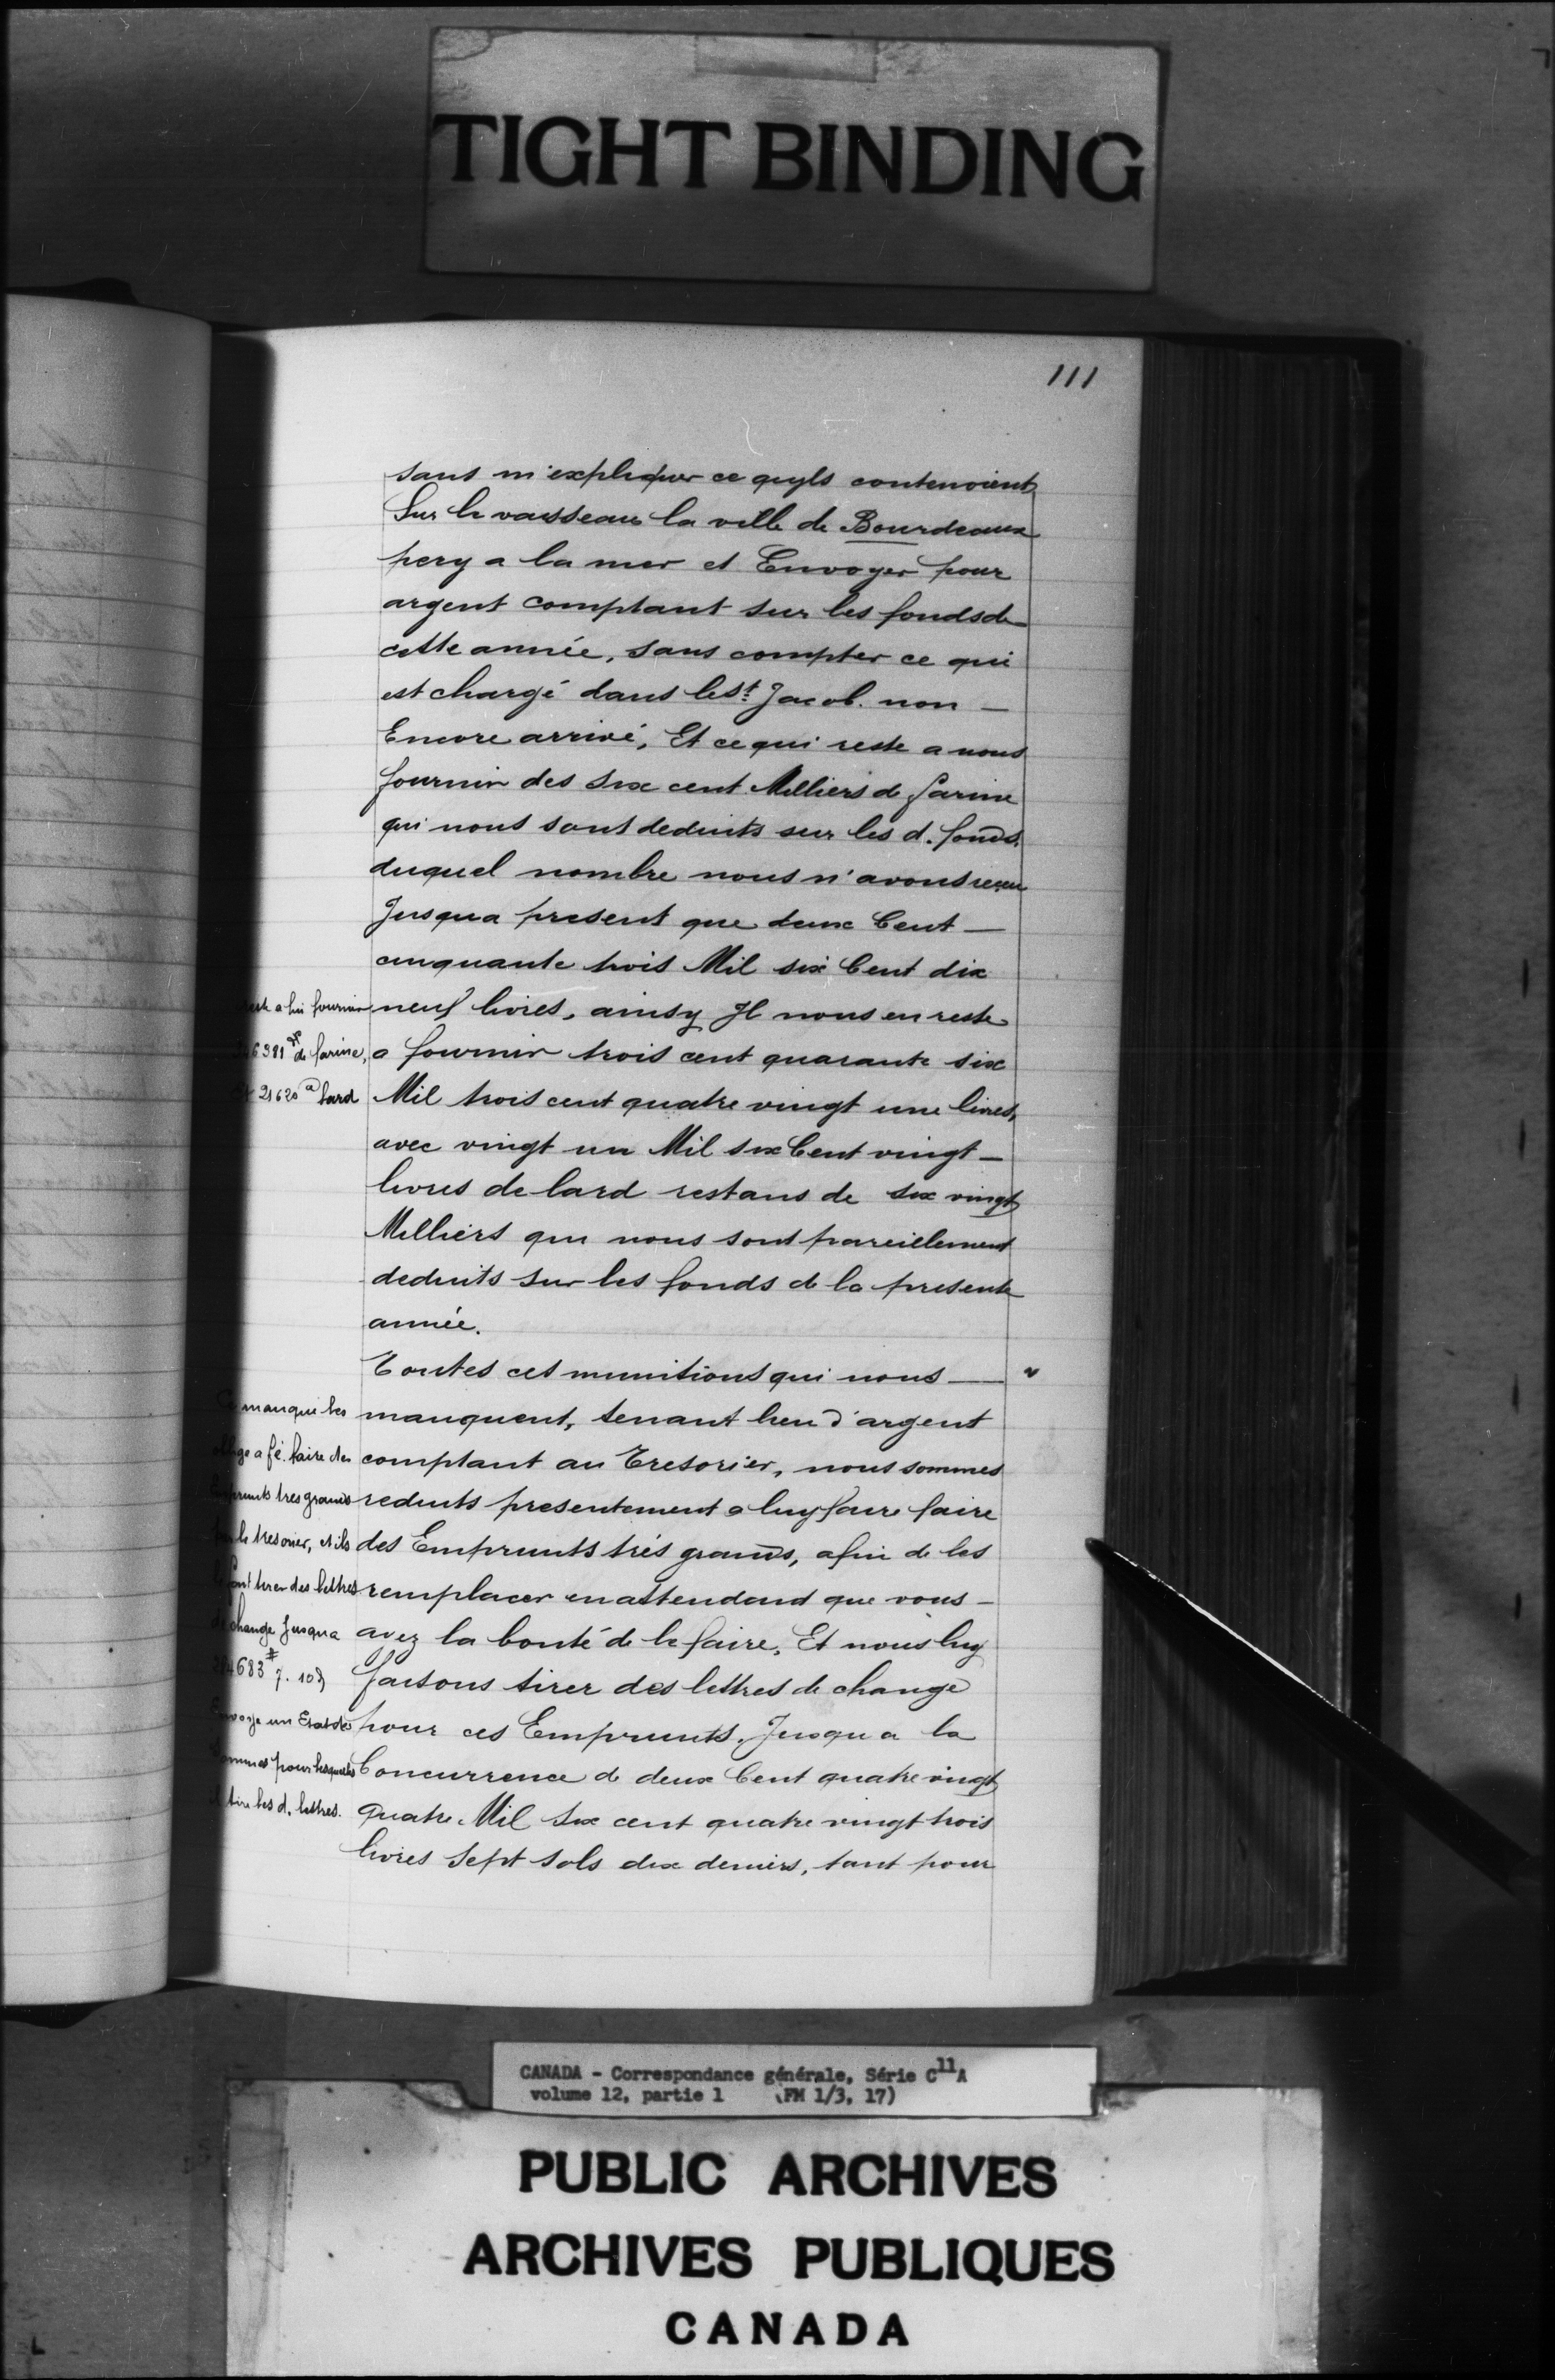 TIGHT BINDING
111
sans m'expliquer ce quyls contenoient
Sur le vaisseau la ville de Bourdeaux
pery a la mer et Envoyer pour
argent comptant sur les fonds de
cette année, sans compter ce qui
est chargé dans le St. Jacob. non —
Encore arrivé, Et ce qui reste a nous
fournir des six cent Milliers de farine
qui nous sont deduits sur les d. fonds.
duquel nombre nous n'avons receu
Jusqua present que deux Cent —
cinquante trois Mil six Cent dix
neuf livres, ainsy Il nous en reste
a fournir trois cent quarante six
Mil trois cent quatre vingt une livres,
avec vingt un Mil six Cent vingt —
livres de lard restans de six vingt
Milliers qui nous sont pareillement
deduits sur les fonds de la presente
année.
reste a lui fournir
346381 # de farine,
et 21620 a lard
Toutes ces munitions qui nous —
manquent, tenant lieu d'argent
comptant au Tresorier, nous sommes
reduits presentement a luy faire faire
des Emprunts trés grands, afin de les
remplacer en attendand que vous —
avez la bonté de le faire, Et nous luy
faisons tirer des lettres de change
pour ces Emprunts, Jusqu a la
Concurrence de deux Cent quatre vingt
quatre Mil six cent quatre vingt trois
livres sept sols dix deniers, tant pour
Ce manque les
oblige a fé. faire des
Emprunts tres grands
par le tresorier, et ils
le font tirer des lettres
de change Jusqua
284683 # 7. 10 d
Envoye un Estat de
sommes pour lesquelles
il tire les d. lettres.
CANADA - Correspondance générale, Série C11A
volume 12, partie 1 (FM 1/3, 17)
PUBLIC ARCHIVES
ARCHIVES PUBLIQUES
CANADA